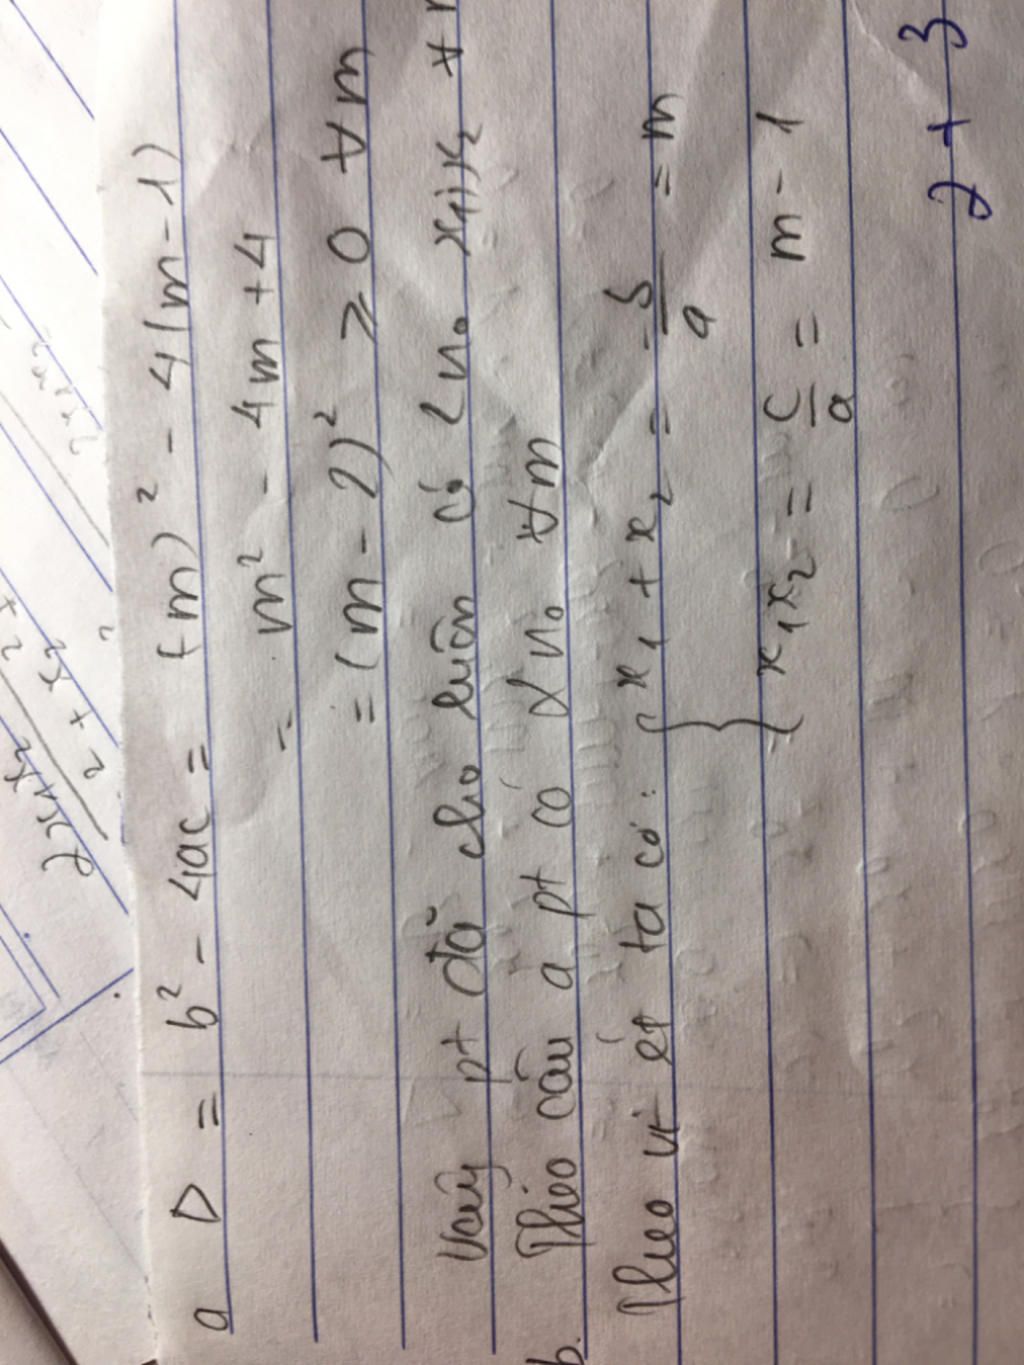 a Δ = b² - 4ac = (-m)² - 4(m-1)
= m² - 4m + 4
= (m - 2)² ≥ 0 ∀m
Vậy pt đã cho luôn có 2 n₀ x₁; x₂ ∀
b. Theo câu a pt có 2 n₀ ∀m
Theo vi-ét ta có: { x₁ + x₂ = -b/a = m
x₁x₂ = c/a = m - 1
2 + 3